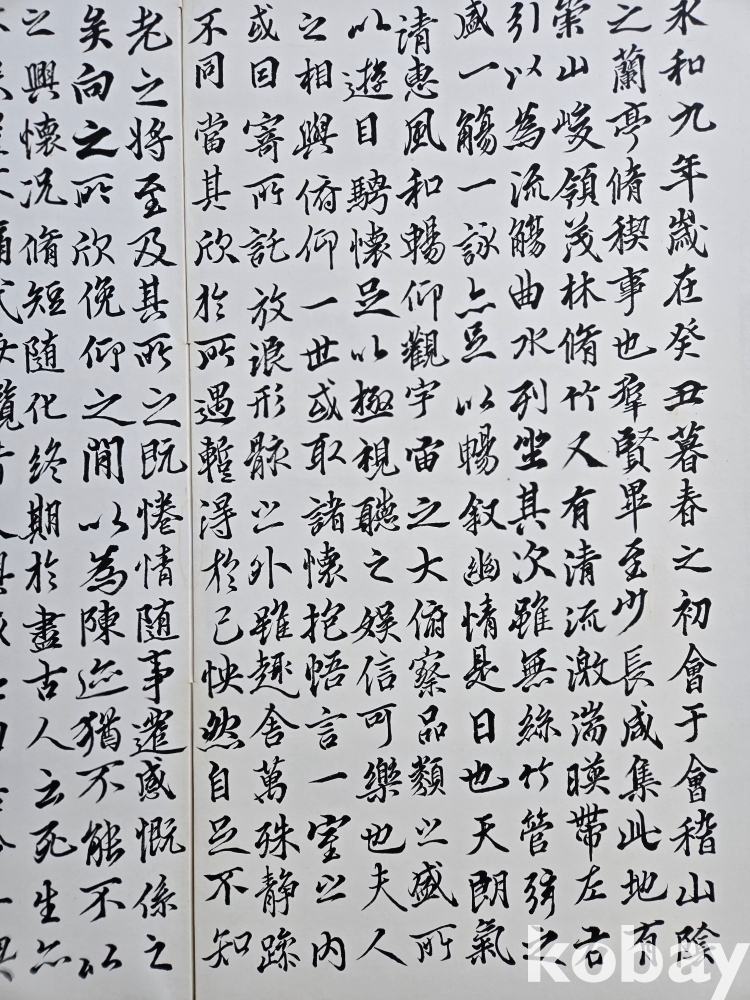 永和九年歲在癸丑暮春之初會于會稽山陰
之蘭亭脩稧事也羣賢畢至少長咸集此地有
崇山峻領茂林脩竹又有清流激湍暎帶左右
引以為流觴曲水列坐其次雖無絲竹管弦之
盛一觴一詠亦足以暢叙幽情是日也天朗氣
請惠風和暢仰觀宇宙之大俯察品類之盛所
以遊目騁懷足以極視聽之娛信可樂也夫人
之相與俯仰一世或取諸懷抱悟言一室之內
或因寄所託放浪形骸之外雖趣舍萬殊靜躁
不同當其欣於所遇蹔得於己怏然自足不知
老之將至及其所之既惓情隨事遷感慨係之
矣向之所欣俛仰之閒以為陳迹猶不能不以
之興懷况脩短隨化終期於盡古人云死生亦
kobay